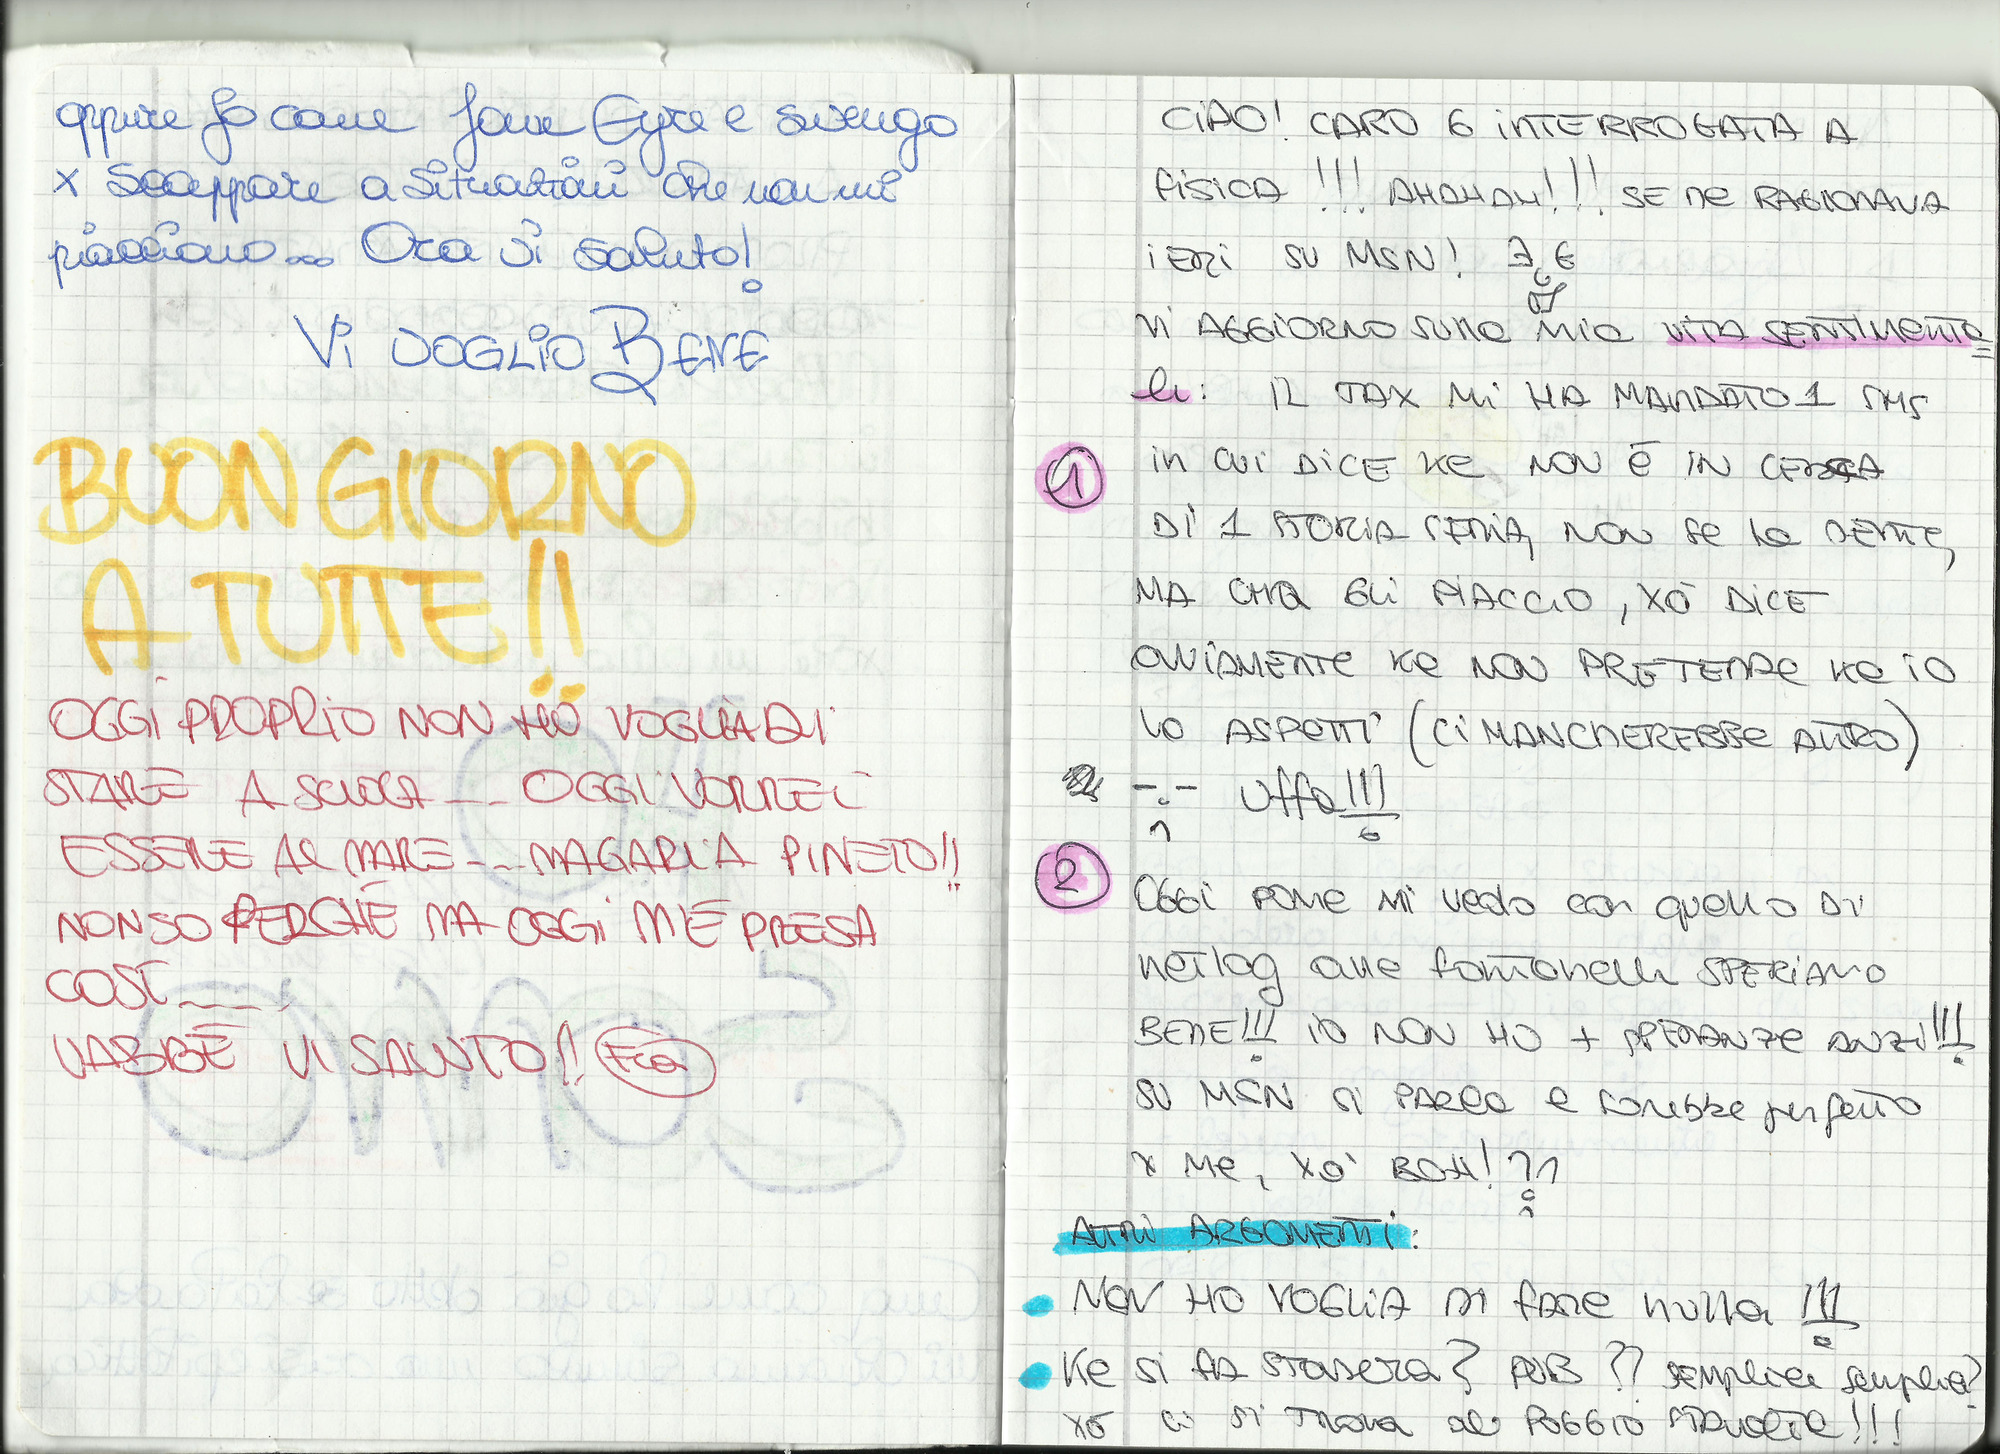 oppure fo come Jane Eyre e svengo
x scappare a situazioni che non mi
piacciono... Ora vi saluto!
Vi VOGLIO BENE
BUON GIORNO
A TUTTE!!
OGGI PROPRIO NON HO VOGLIA DI
STARE A SCUOLA ... OGGI VORREI
ESSERE AL MARE ... MAGARI A PINETO!!
NON SO PERCHÉ MA OGGI M'È PRESA
COSÌ ....
VABBÈ VI SALUTO!! Fra
CIAO! CARO 6 INTERROGATA A
FISICA !!! AHAHAH!!! SE NE RAGIONAVA
IERI SU MSN!
VI AGGIORNO SULLA MIA VITA SENTIMENTA=
le: IL TAX MI HA MANDATO 1 SMS
1 in CUI DICE KE NON È IN CERCA
DI 1 STORIA SERIA, NON SE LA SENTE,
MA CHE GLI PIACCIO, XÒ DICE
OVVIAMENTE KE NON PRETENDE KE IO
LO ASPETTI (CI MANCHEREBBE ALTRO)
-.- Uffa!!!
2 OGGI POME MI VEDO CON quello DI
netlog alle fontanelle SPERIAMO
BENE!!! IO NON HO + SPERANZE ANZI!!!
SU MSN SI PARLA e sarebbe perfetto
x ME, XO' BOH!??
ALTRI ARGOMENTI:
• NON HO VOGLIA DI FARE nulla !!!
• Ke SI FA STASERA? PUB ?? semplice semplice?
XÒ CI SI TROVA al POGGIO STAVOLTA!!!